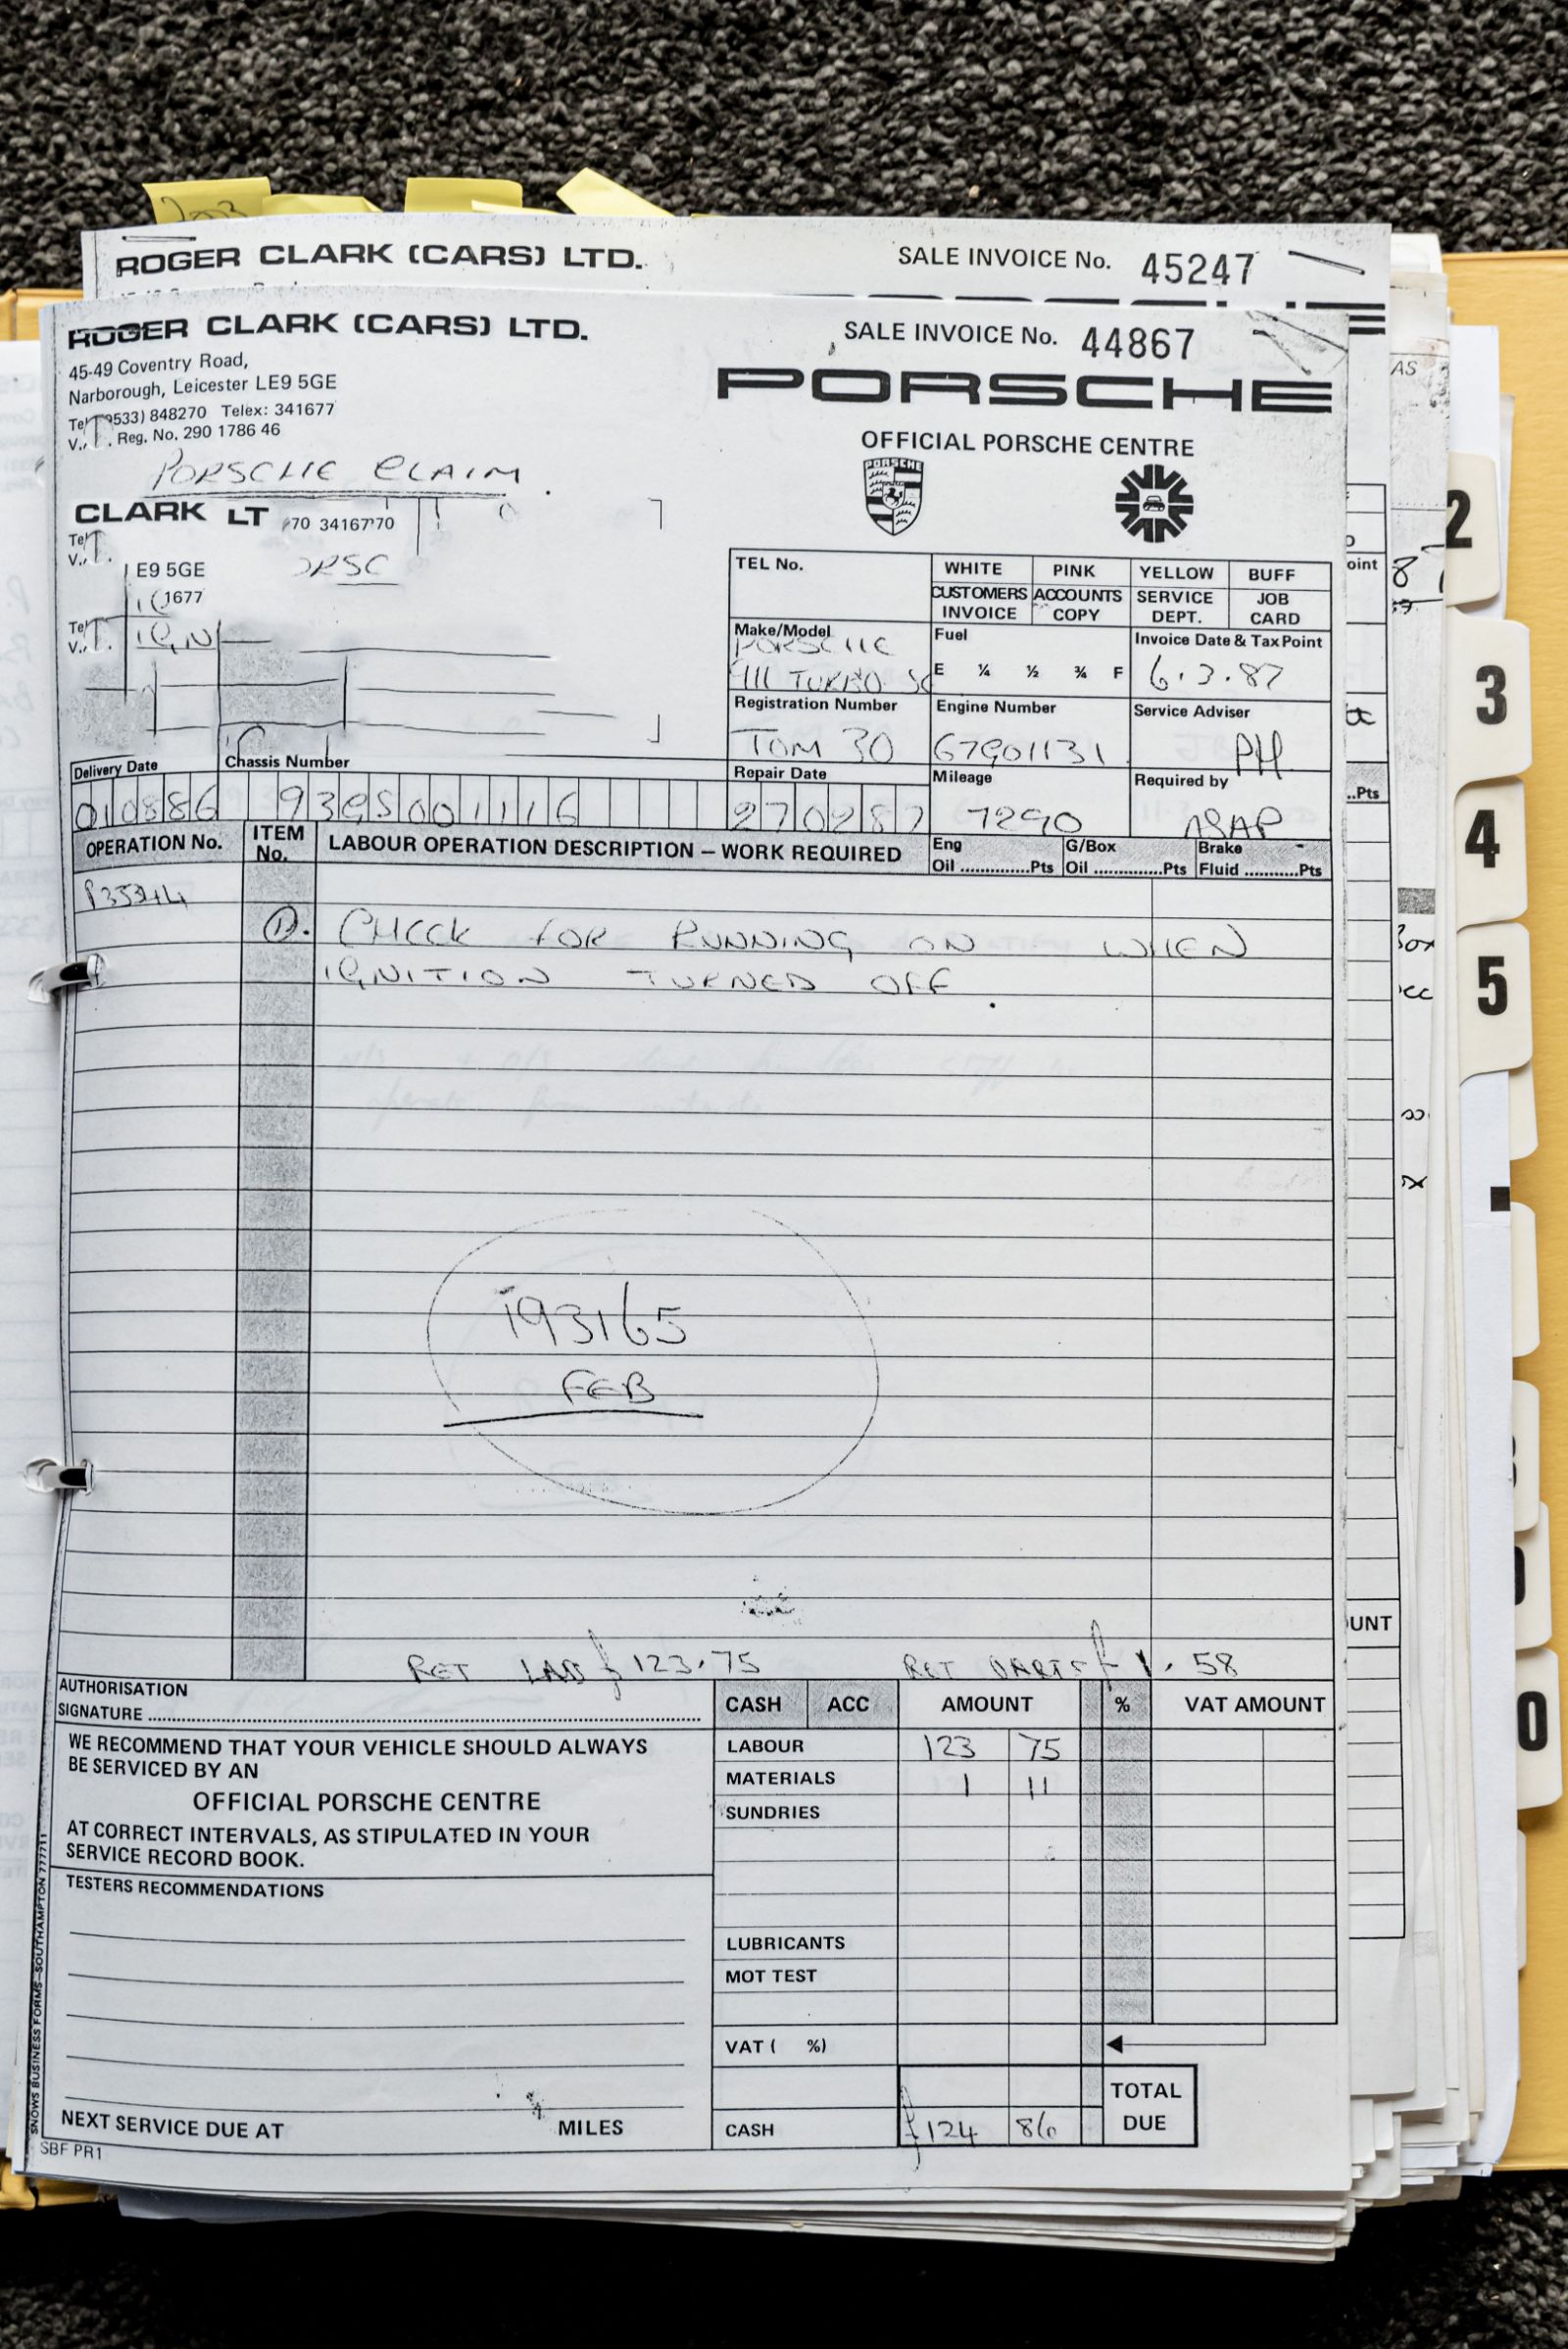 2003
ROGER CLARK (CARS) LTD.
SALE INVOICE No. 45247
ROGER CLARK (CARS) LTD.
SALE INVOICE No. 44867
45-49 Coventry Road,
Narborough, Leicester LE9 5GE
Tel 533) 848270 Telex: 341677
V. . Reg. No. 290 1786 46
PORSCHE
OFFICIAL PORSCHE CENTRE
PORSCHE
PORSCHE CLAIM.
CLARK LT 70 34167 70
Tel
V.
E9 5GE
1677
Tel
V.
IGN
TEL No.
WHITE PINK YELLOW BUFF
CUSTOMERS INVOICE ACCOUNTS COPY SERVICE DEPT. JOB CARD
Make/Model
PORSCHE
911 TURBO SE
Fuel
E ¼ ½ ¾ F
Invoice Date & Tax Point
6.3.87
Registration Number
TOM 30
Engine Number
67G01131
Service Adviser
PH
Delivery Date
010886
Chassis Number
93GS001116
Repair Date
270287
Mileage
7290
Required by
ASAP
OPERATION No. ITEM No. LABOUR OPERATION DESCRIPTION – WORK REQUIRED
Eng Oil .............Pts G/Box Oil .............Pts Brake Fluid ...........Pts
①. CHECK FOR RUNNING ON WHEN
IGNITION TURNED OFF.
193165
FEB
RET LAB £123.75 RET PARTS £1.58
AUTHORISATION
SIGNATURE
CASH ACC AMOUNT % VAT AMOUNT
WE RECOMMEND THAT YOUR VEHICLE SHOULD ALWAYS
BE SERVICED BY AN
OFFICIAL PORSCHE CENTRE
AT CORRECT INTERVALS, AS STIPULATED IN YOUR
SERVICE RECORD BOOK.
LABOUR 123 75
MATERIALS 1 11
SUNDRIES
TESTERS RECOMMENDATIONS
LUBRICANTS
MOT TEST
VAT ( %)
TOTAL DUE
CASH £124 86
NEXT SERVICE DUE AT MILES
SBF PR1
SNOWS BUSINESS FORMS–SOUTHAMPTON 777711
AS
oint
..Pts
UNT
2
3
4
5
0